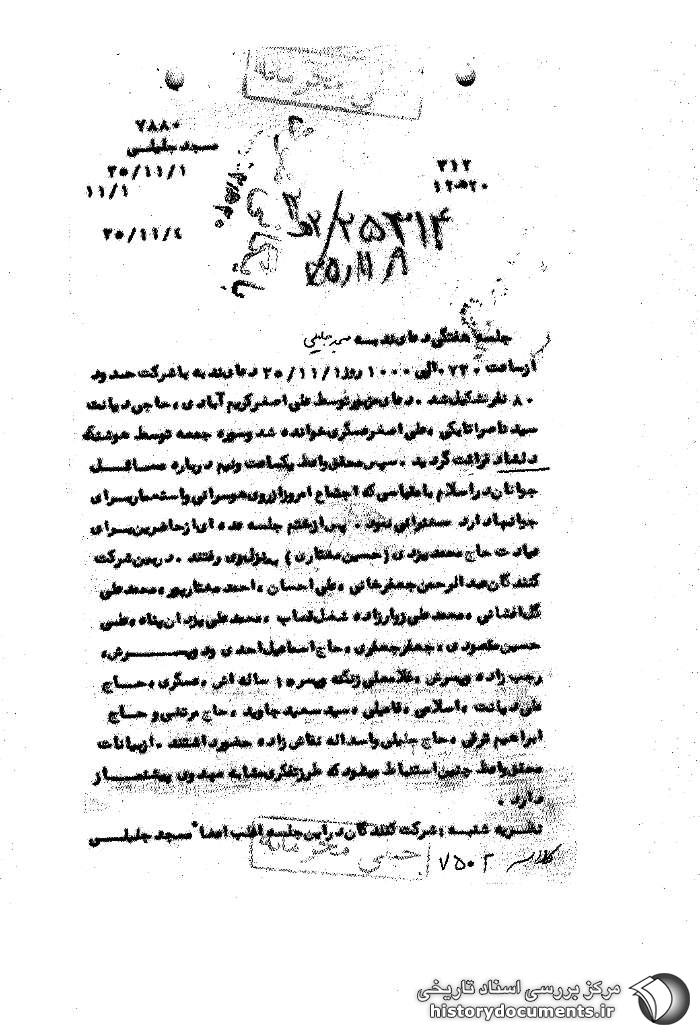 خیلی محرمانه
۷۸۸۰
مسجد جلیلی
۳۵/۱۱/۱
۱۱/۱
۳۵/۱۱/۴
۳۱۲
۱۲ ۲۰
بایگانی
۲۵۳۱۴
۳۵/۱۱/۸
جلسه هفتگی دعای ندبه مسجد جلیلی
از ساعت ۰۷۳۰ الی ۱۰۰۰ روز ۳۵/۱۱/۱ دعای ندبه با شرکت حدود
۸۰ نفر تشکیل شد. دعای مزبور توسط علی اصغر کریم آبادی، حاجی دیانت
سید ناصر اتابکی، علی اصغر عسگری خوانده شد و سوره جمعه توسط هوشنگ
دلشاد قرائت گردید. سپس محقق واعظ یکساعت و نیم درباره مسائل
جوانان در اسلام با مقیاسی که اجتماع امروز از روی هوسرانی و استعمار برای
جوانها دارد سخنرانی نمود. پس از ختم جلسه عده ای از حاضرین برای
عیادت حاج محمد یزدی (حسین مختاری) بمنزل وی رفتند. در بین شرکت
کنندگان عبدالرحمن جعفرخانی، علی احسان، احمد مختارپور، محمد علی
گل افشانی، محمد علی زوارزاده شغل قصاب، محمد علی یزدان پناه، علی
حسین مقصودی، جعفر جعفری، حاج اسماعیل احدی و دو پسرش،
رجب زاده و پسرش، غلامعلی زنگنه و پسر ۱۵ ساله اش، عسگری، حاج
علی دیانت، اسلامی، فامیلی، سید سعید جاوید، حاج مرتضی و حاج
ابراهیم ترقی، حاج جلیلی و اسداله نقاش زاده حضور داشتند. از بیانات
محقق واعظ چنین استنباط میشود که طرز تفکری مشابه مهدوی پیشنماز
دارد.
نظریه شنبه: شرکت کنندگان در این جلسه اغلب اعضاء مسجد جلیلی
۷۵۰۲
خیلی محرمانه
مرکز بررسی اسناد تاریخی
historydocuments.ir